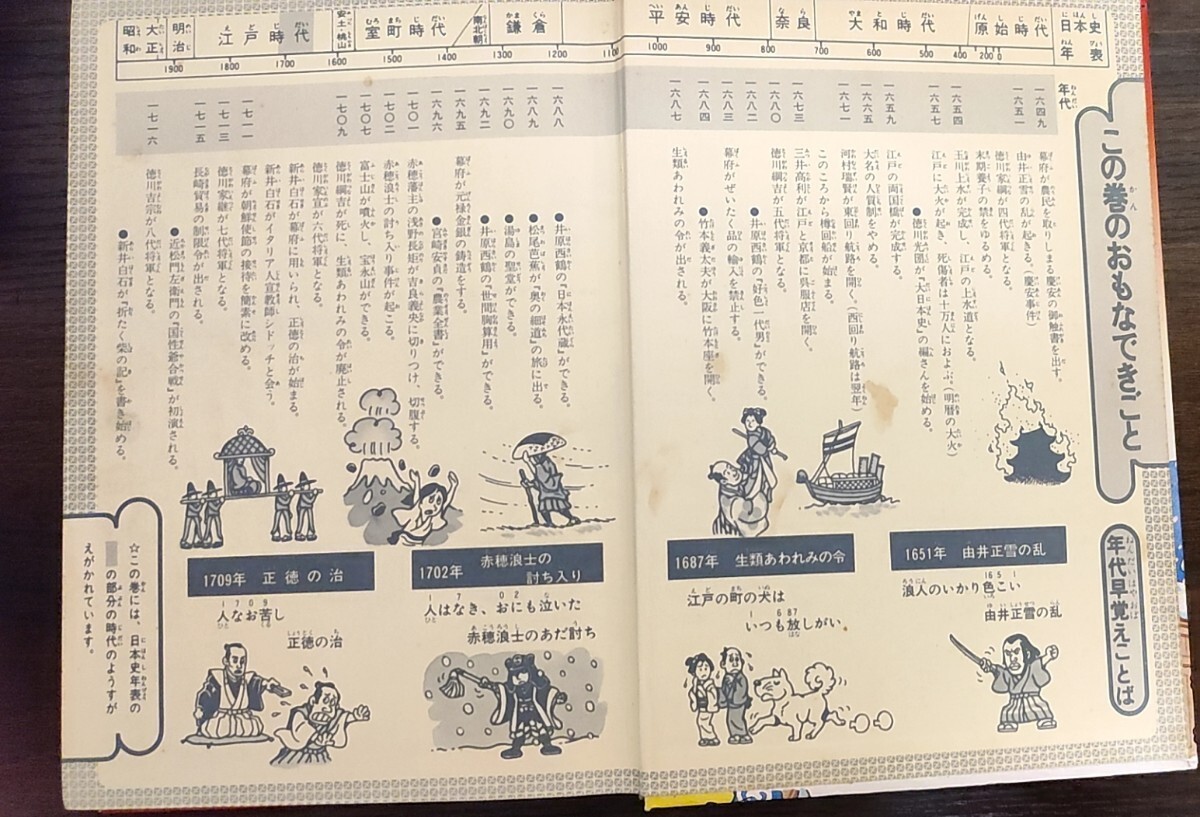 日本史年表
原始時代
大和時代
奈良
平安時代
鎌倉
南北朝
室町時代
安土・桃山
江戸時代
明治
大正
昭和
0 200 400 500 600 700 800 900 1000 1100 1200 1300 1400 1500 1600 1700 1800 1900
この巻のおもなできごと
年代
一六四九 幕府が農民を取りしまる慶安の御触書を出す。
一六五一 由井正雪の乱が起きる。(慶安事件)
徳川家綱が四代将軍となる。
末期養子の禁をゆるめる。
一六五四 玉川上水が完成し、江戸の上水道となる。
一六五七 江戸に大火が起き、死傷者は十万人におよぶ。(明暦の大火)
●徳川光圀が『大日本史』の編さんを始める。
一六五九 江戸の両国橋が完成する。
一六六五 大名の人質制をやめる。
一六七一 河村瑞賢が東回り航路を開く。(西回り航路は翌年)
このころから樽回船が始まる。
一六七三 三井高利が江戸と京都に呉服店を開く。
一六八〇 徳川綱吉が五代将軍となる。
一六八二 ●井原西鶴の『好色一代男』ができる。
一六八三 幕府がぜいたく品の輸入を禁止する。
一六八四 ●竹本義太夫が大阪に竹本座を開く。
一六八七 生類あわれみの令が出される。
一六八八 ●井原西鶴の『日本永代蔵』ができる。
一六八九 ●松尾芭蕉が『奥の細道』の旅に出る。
一六九〇 ●湯島の聖堂ができる。
一六九二 ●井原西鶴の『世間胸算用』ができる。
一六九五 幕府が元禄金銀の鋳造をする。
一六九六 ●宮崎安貞の『農業全書』ができる。
一七〇一 赤穂藩主の浅野長矩が吉良義央に切りつけ、切腹する。
一七〇二 赤穂浪士の討ち入り事件が起こる。
一七〇七 富士山が噴火し、宝永山ができる。
一七〇九 徳川綱吉が死に、生類あわれみの令が廃止される。
徳川家宣が六代将軍となる。
新井白石が幕府に用いられ、正徳の治が始まる。
新井白石がイタリア人宣教師シドッチと会う。
一七一一 幕府が朝鮮使節の接待を簡素に改める。
一七一三 徳川家継が七代将軍となる。
一七一五 長崎貿易の制限令が出される。
●近松門左衛門の『国性爺合戦』が初演される。
一七一六 徳川吉宗が八代将軍となる。
●新井白石が『折たく柴の記』を書き始める。
年代早覚えことば
1651年 由井正雪の乱
浪人のいかり色こい
由井正雪の乱
1687年 生類あわれみの令
江戸の町の犬は
いつも放しがい
1702年 赤穂浪士の
討ち入り
人はなき、おにも泣いた
赤穂浪士のあだ討ち
1709年 正徳の治
人なお苦し
正徳の治
☆この巻には、日本史年表の
の部分の時代のようすが
えがかれています。